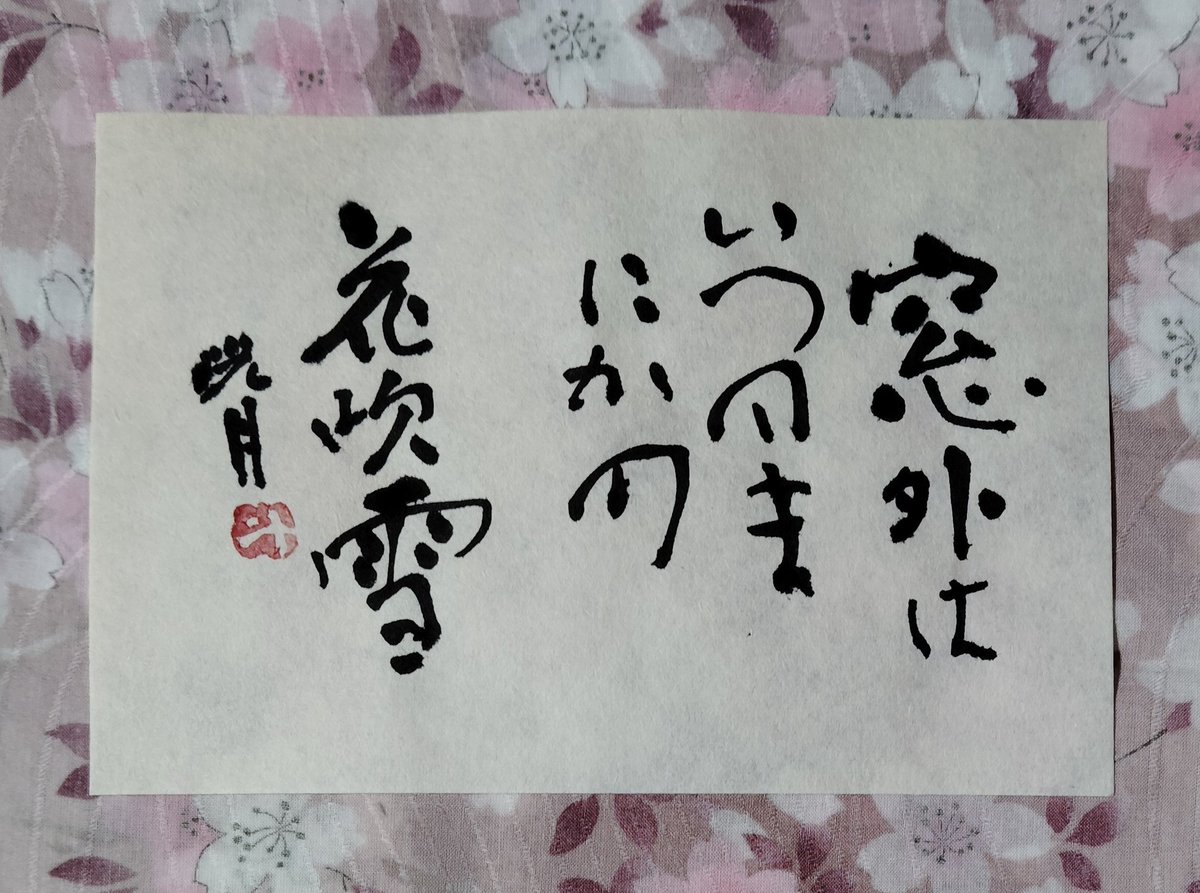 窓外は
いつのま
にかの
花吹雪
月